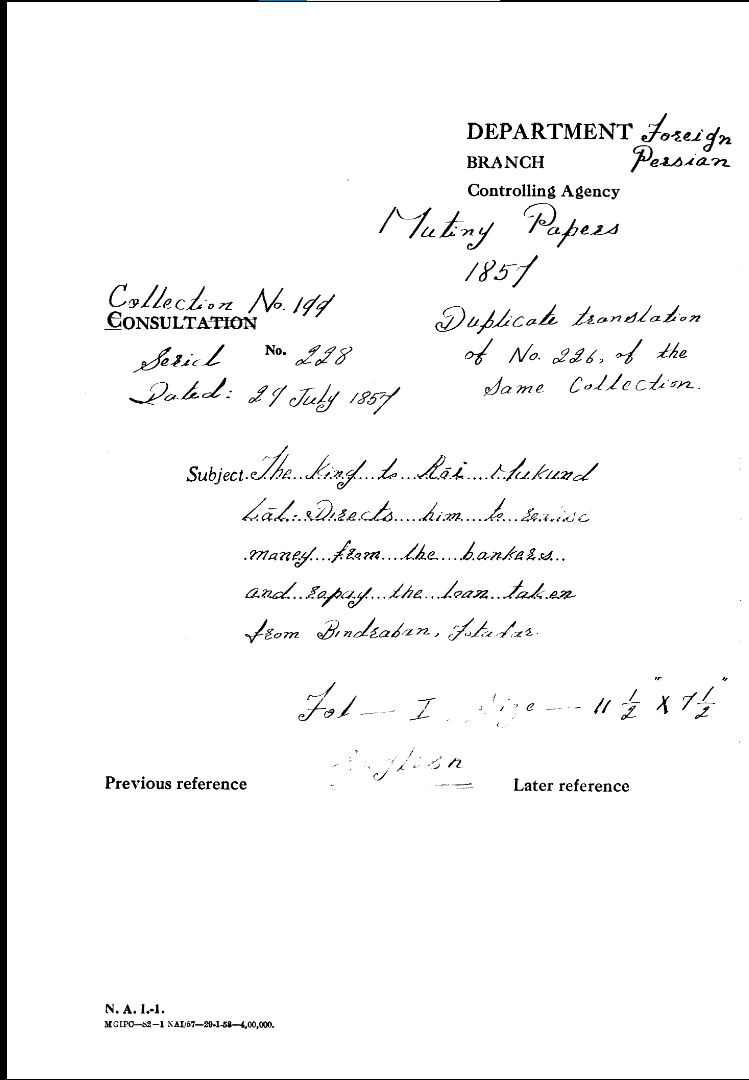 DEPARTMENT Foreign
BRANCH Persian
Controlling Agency
Mutiny Papers
1857
Collection No. 199
CONSULTATION
Serial No. 228
Dated: 27 July 1857
Duplicate translation
of No. 226, of the
Same Collection.
Subject. The King to Rāi Mukund
Lāl. Directs him to
money from the bankers
and repay the loan taken
from Bindraban,
Fol — I Size — 11 1/2" X 7 1/2"
English
Previous reference Later reference
N. A. I.-1.
MGIPC—S2—1 NAI/57—29-1-58—4,00,000.